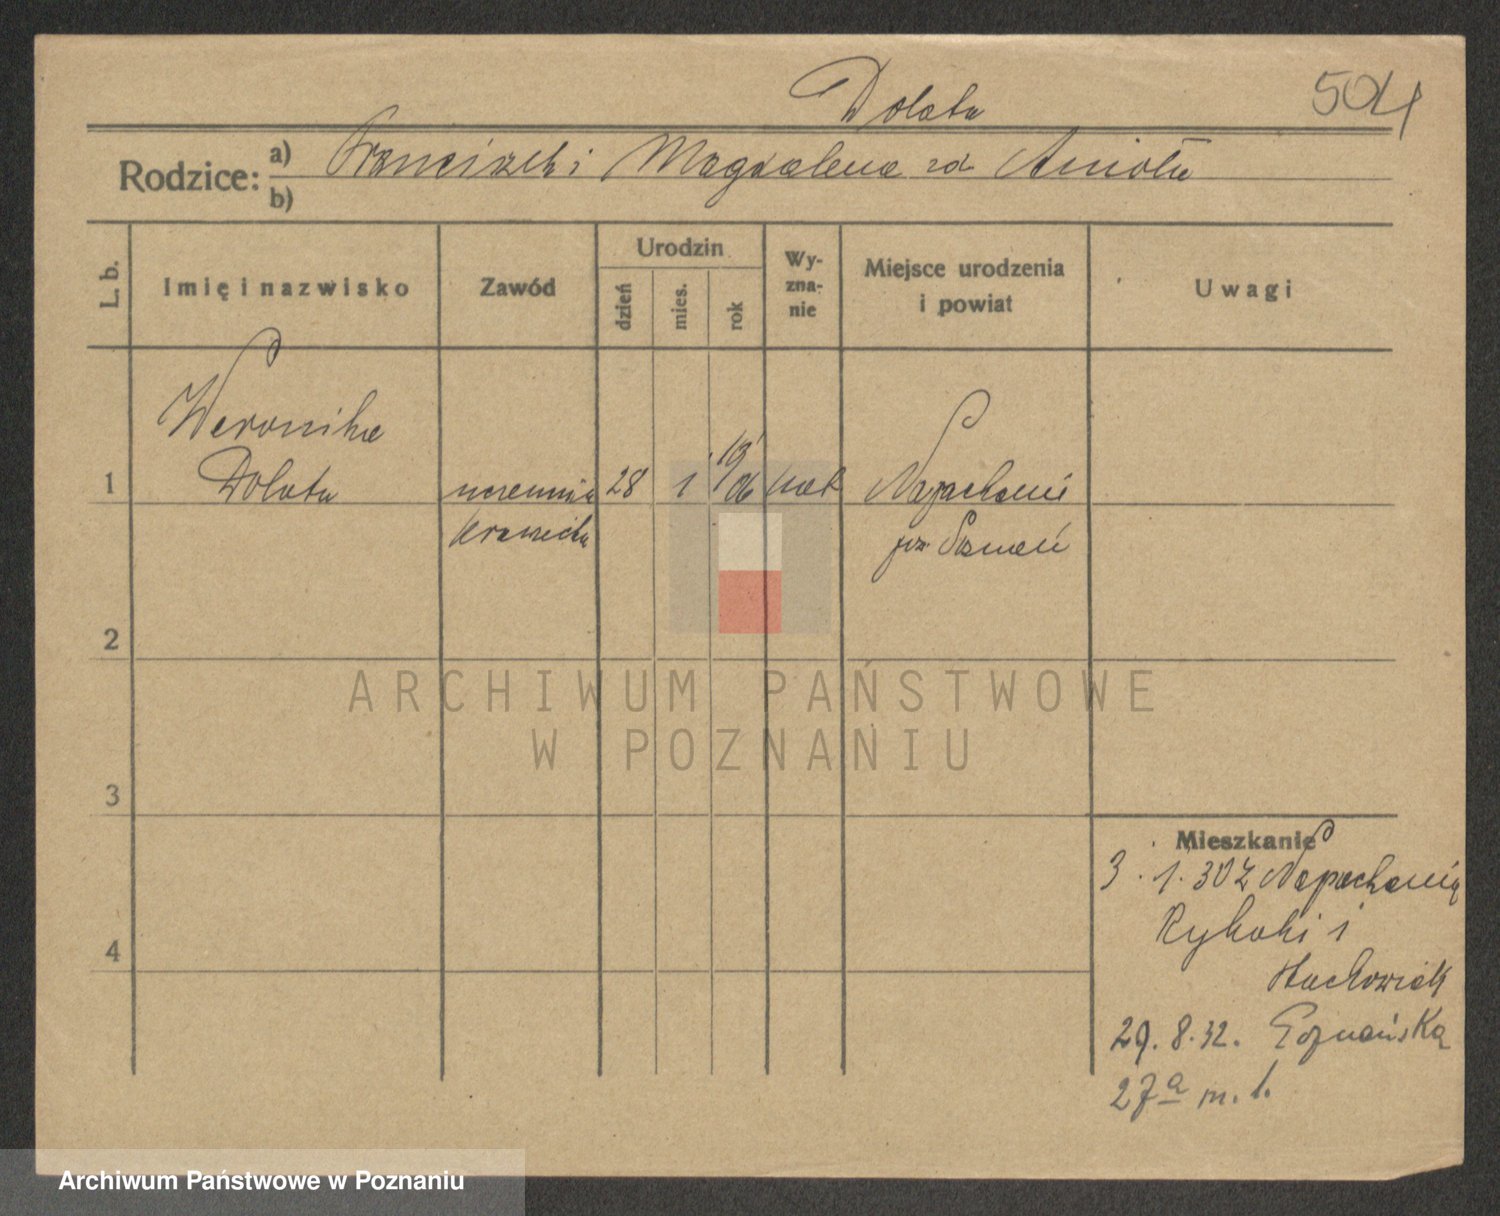 Dolata
504
Rodzice: a) Franciszek i Magdalena zd Anioła
b)
L. b.
Imię i nazwisko
Zawód
Urodzin
dzień
mies.
rok
Wy-
zna-
nie
Miejsce urodzenia
i powiat
Uwagi
Weronika
1 Dolata uczennica 28 1 19/06 kat Napachanie
krawiecka
pow. Poznań
2
3
4
ARCHIWUM PAŃSTWOWE
W POZNANIU
Mieszkanie
3.1.30 z Napachania
Rynek 1
29.8.32. Poznańska
27a m. 1.
Archiwum Państwowe w Poznaniu